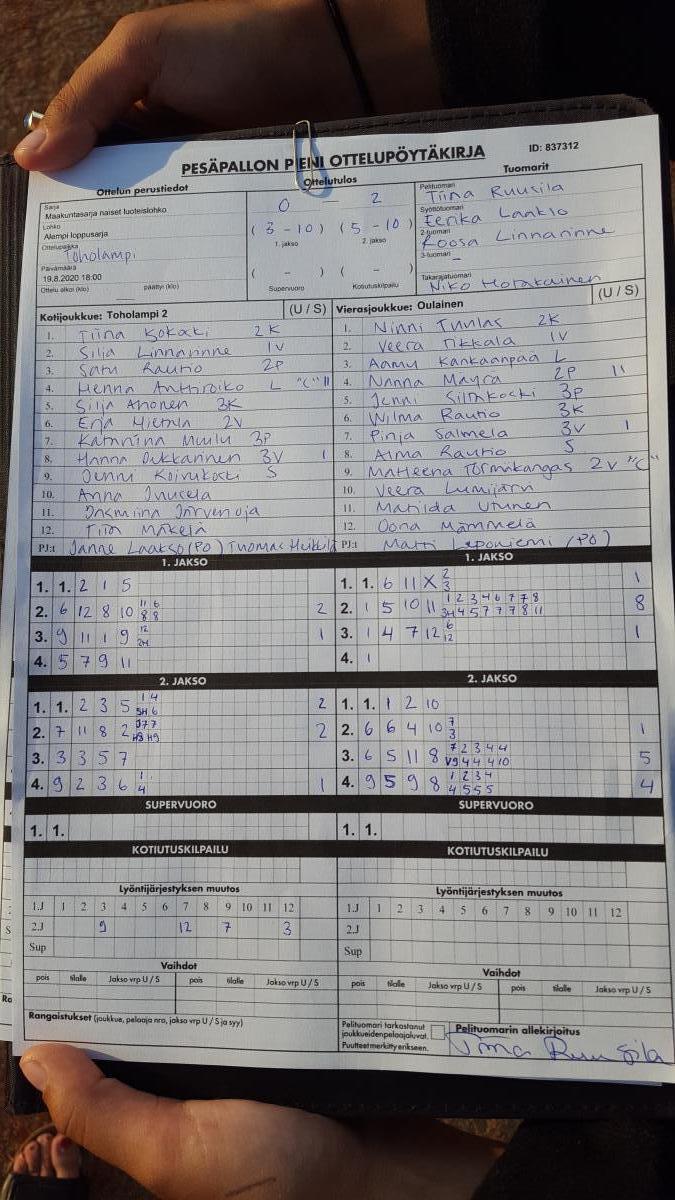 PESÄPALLON PIENI OTTELUPÖYTÄKIRJA ID: 837312
Ottelun perustiedot Ottelutulos Tuomarit
Sarja
Maakuntasarja naiset luoteislohko
Lohko
Alempi loppusarja
Ottelupaikka
Toholampi
Päivämäärä
19.8.2020 18:00
Ottelu alkoi (klo) päättyi (klo)
0 2
( 3 - 10 ) ( 5 - 10 )
1. jakso 2. jakso
( - ) ( - )
Supervuoro Kotiutuskilpailu
Pelituomari
Tiina Ruusila
Syöttötuomari
Eerika Laakso
2-tuomari
Roosa Linnarinne
3-tuomari
Takarajatuomari
Niko Hotakainen
Kotijoukkue: Toholampi 2 (U / S)
1. Tiina Kokoski 2K
2. Silja Linnarinne 1V
3. Satu Rautio 2P
4. Henna Anttiroiko L "C" 11
5. Silja Ahonen 3K
6. Erja Hietala 2V
7. Katariina Muulu 3P
8. Hanna Dukkannen 3V 1
9. Jenni Koivukoski S
10. Anna
11. Jasmiina Järvenoja
12. Tiia Mäkelä
PJ:t Janne Laakso (PO) Tuomas Heikkilä
Vierasjoukkue: Oulainen (U / S)
1. Ninni Tuulas 2K
2. Veera Tikkala 1V
3. Aamu Kankaanpää L
4. Nanna Mäyrä 2P 11
5. Jenni Siltakoski 3P
6. Wilma Rautio 3K
7. Pinja Salmela 3V 1
8. Alma Rautio S
9. Matleena Törmäkangas 2V "C"
10. Veera Lumijärvi
11. Matilda Utunen
12. Oona Mämmelä
PJ:t Matti Leponiemi (PO)
1. JAKSO
1. 1. 2 1 5
2. 6 12 8 10 11 6 2
8 8
3. 9 11 1 9 12 1
2H
4. 5 7 9 11
1. JAKSO
1. 1. 6 11 X 2 1
3
2. 1 5 10 11 1 2 3 4 6 7 7 8 8
3H 4 5 7 7 7 8 11
3. 1 4 7 12 6 1
12
4. 1
2. JAKSO
1. 1. 2 3 5 1 4 2
5H 6
2. 7 11 8 2 2
H3 H9
3. 3 3 5 7
4. 9 2 3 6 1 1
4
2. JAKSO
1. 1. 1 2 10
2. 6 6 4 10 7 1
3
3. 6 5 11 8 7 2 3 4 4 5
V9 4 4 4 10
4. 9 5 9 8 1 2 3 4 4
4 5 5 5
SUPERVUORO SUPERVUORO
1. 1. 1. 1.
KOTIUTUSKILPAILU KOTIUTUSKILPAILU
Lyöntijärjestyksen muutos Lyöntijärjestyksen muutos
1.J 1 2 3 4 5 6 7 8 9 10 11 12
2.J 9 12 7 3
Sup
1.J 1 2 3 4 5 6 7 8 9 10 11 12
2.J
Sup
Vaihdot Vaihdot
pois tilalle Jakso vrp U / S pois tilalle Jakso vrp U / S
pois tilalle Jakso vrp U / S pois tilalle Jakso vrp U / S
Rangaistukset (joukkue, pelaaja nro, jakso vrp U / S ja syy)
Pelituomari tarkastanut
joukkueiden pelaajaluvat.
Puutteet merkitty erikseen.
Pelituomarin allekirjoitus
Tiina Ruusila